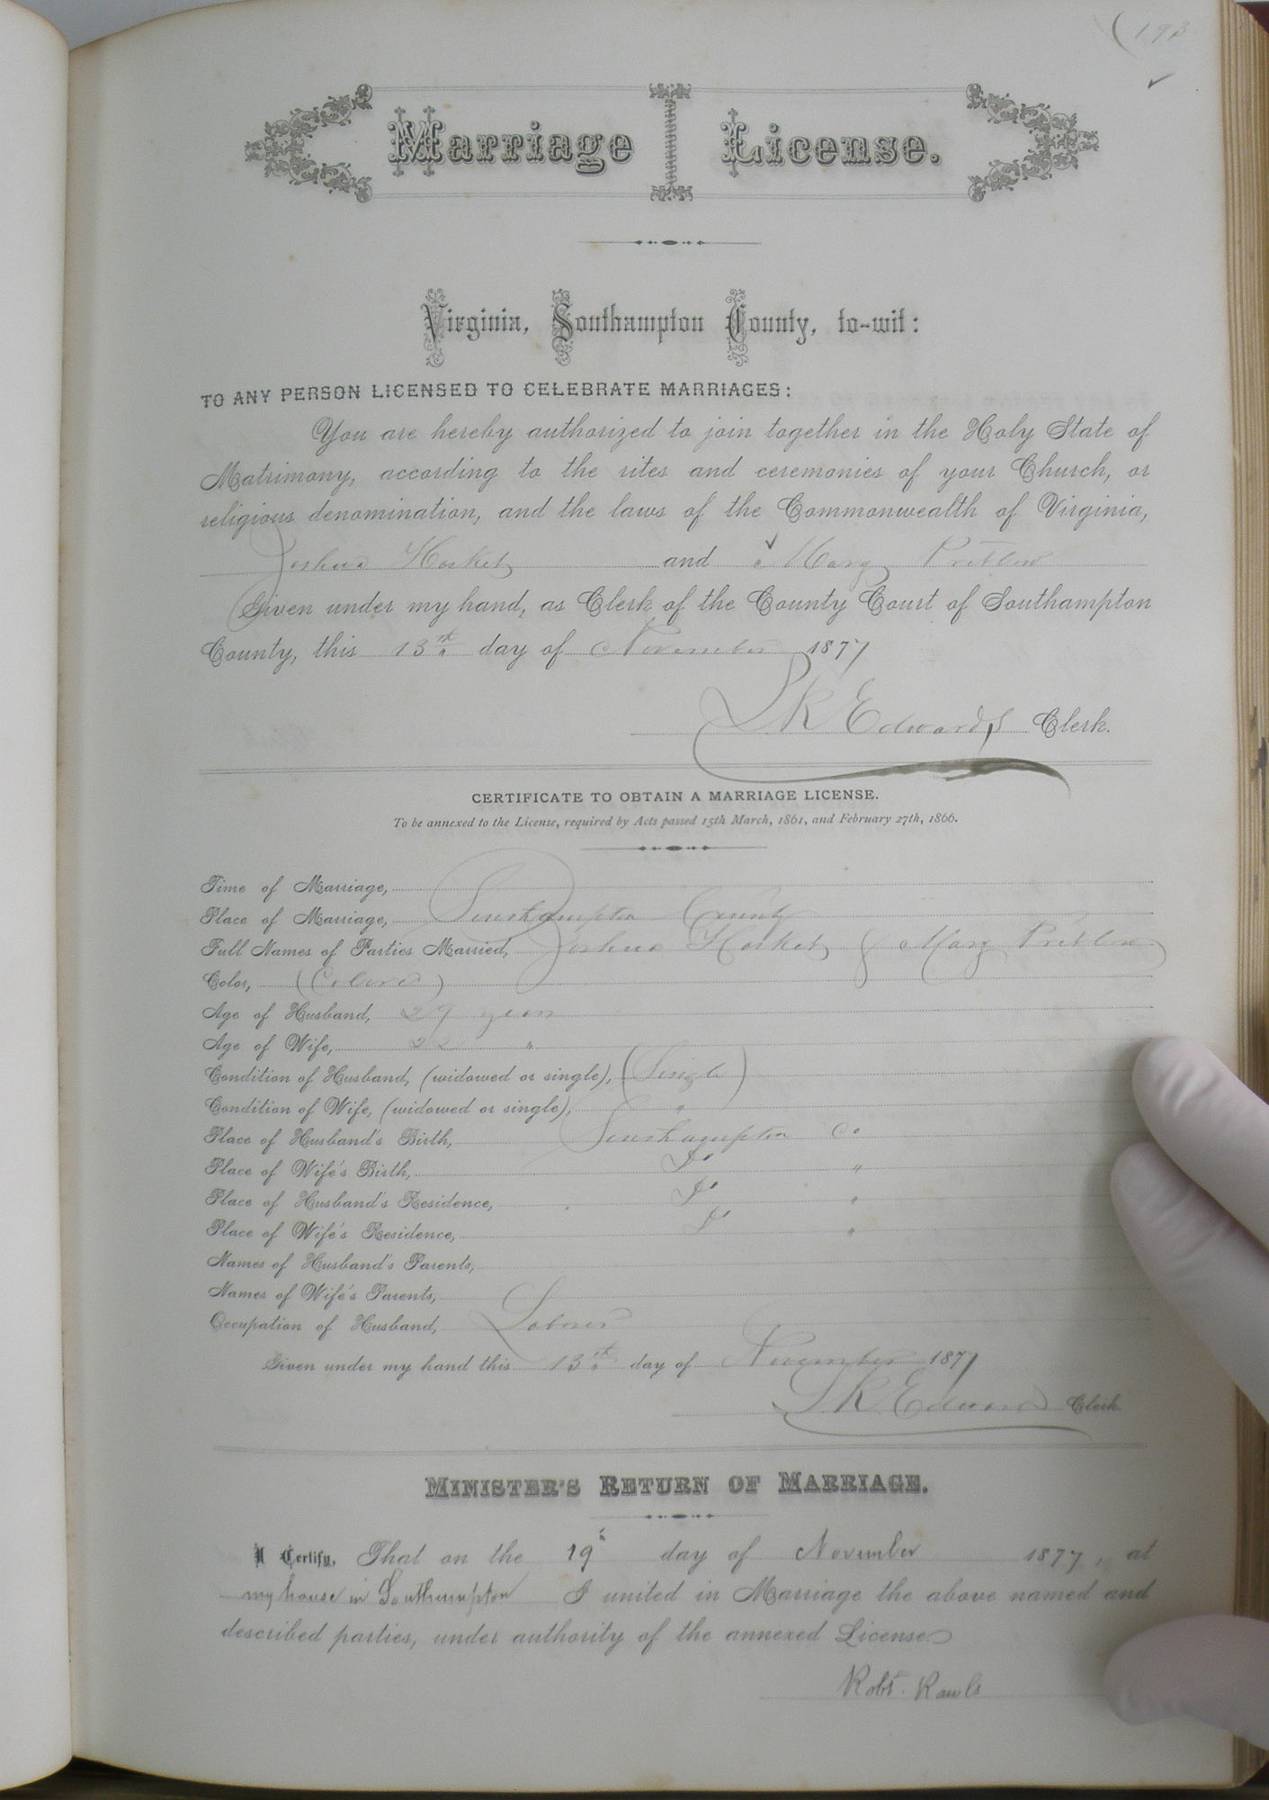 193
Marriage License.
Virginia, Southampton County, to-wit:
TO ANY PERSON LICENSED TO CELEBRATE MARRIAGES:
You are hereby authorized to join together in the Holy State of
Matrimony, according to the rites and ceremonies of your Church, or
religious denomination, and the laws of the Commonwealth of Virginia,
Joshua and Mary Pretlow
Given under my hand, as Clerk of the County Court of Southampton
County, this 13th day of November 1877
L R Edwards Clerk.
CERTIFICATE TO OBTAIN A MARRIAGE LICENSE.
To be annexed to the License, required by Acts passed 15th March, 1861, and February 27th, 1866.
Time of Marriage,
Place of Marriage, Southampton County
Full Names of Parties Married, Joshua & Mary Pretlow
Color, (Colored)
Age of Husband, 29 years
Age of Wife, 22 "
Condition of Husband, (widowed or single), (Single)
Condition of Wife, (widowed or single), "
Place of Husband's Birth, Southampton Co.
Place of Wife's Birth, Do "
Place of Husband's Residence, Do "
Place of Wife's Residence, Do "
Names of Husband's Parents,
Names of Wife's Parents,
Occupation of Husband, Laborer
Given under my hand this 13th day of November 1877
L R Edwards Clerk
MINISTER'S RETURN OF MARRIAGE.
I Certify, That on the 19th day of November 1877, at
my house in Southampton I united in Marriage the above named and
described parties, under authority of the annexed License.
Robt. Rawls